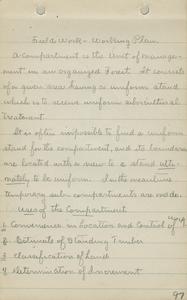 Field Work - Working Plan
A compartment is the Unit of manage-
ment in an organized Forest. It consists
of a given area having a uniform stand
which is to receive uniform silvicultural
treatment.
It is often impossible to find a uniform
stand for the compartment, and its boundaries
are located with a view to a stand ulti-
mately to be uniform. In the meantime
temporary sub-compartments are made.
Uses of the Compartment
1. Convenience in Location and Control of
2. Estimate of Standing Timber
3. Classification of Lands
4. Determination of Increment
97